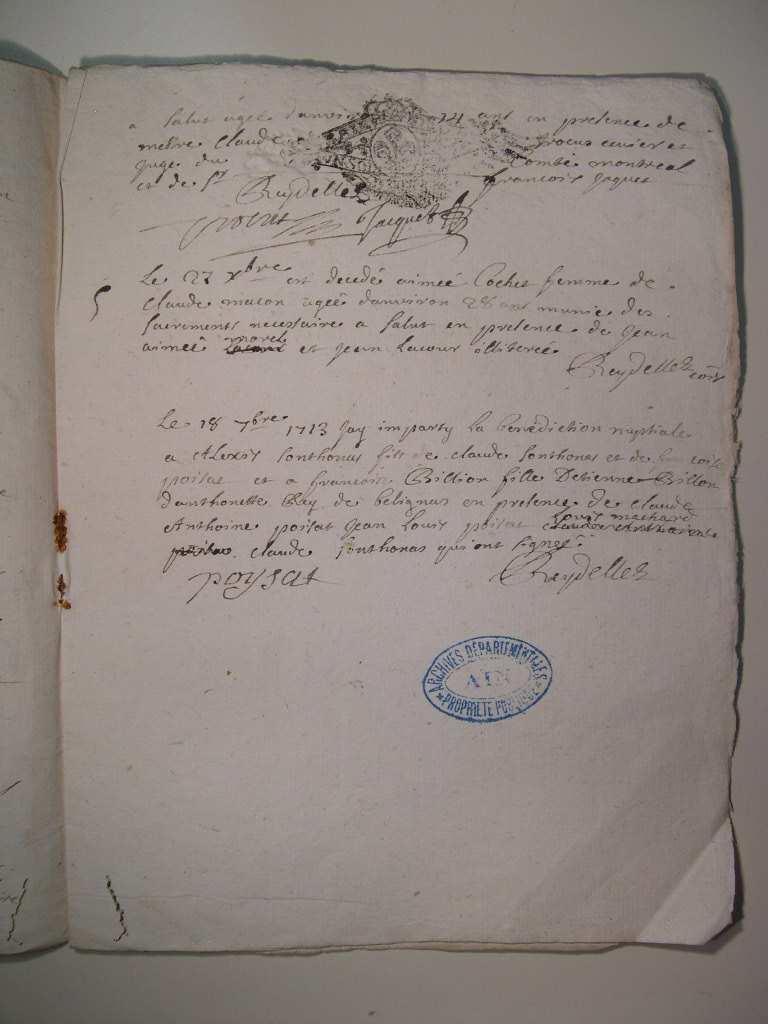 a salut agée danviron 24 ans en presence de
messre Claude procureur et
juge du Combe montreal
et de Sr francois Jaquet
Reydellet
Jacquet
Le 22 Xbre est decedé aimeé Cochet femme de
5
Claude macon ageé danviron 28 ans munie des
sacrements necessaire a salut en presence de Jean
aimeé morel et Jean Lacour illitereé
Reydellet curé
Le 18 7bre 1713 Jay imparty la benediction nuptiale
a Alexis sonthonas fils de claude sonthonas et de francoise
poisat et a francoise Billion fille Detienne Billon
danthonette Rey de belignas en presence de claude
Anthoine poisat Jean Louis poisat Louis machard
claude sonthonas qui ont signeé
poysat
Reydellet
ARCHIVES DEPARTEMENTALES
AIN
PROPRIETE PUBLIQUE